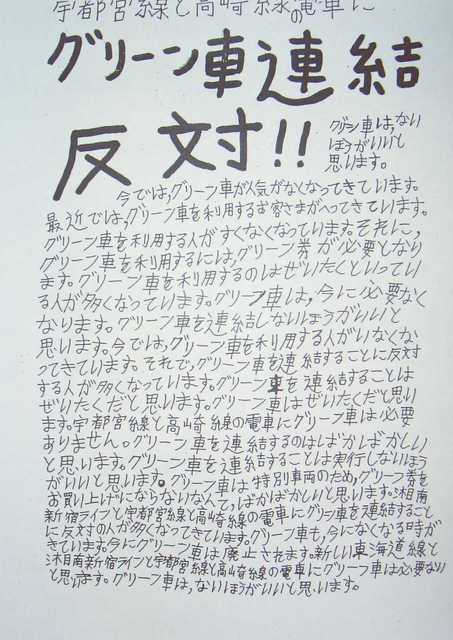 宇都宮線と高崎線の電車に
グリーン車連結
反対!!
グリーン車は,ない
ほうがいいと
思います。
今では,グリーン車が人気がなくなってきています。
最近では,グリーン車を利用するお客さまがへってきています。
グリーン車を利用する人がすくなくなっています。それに,
グリーン車を利用するには,グリーン券が必要となり
ます。グリーン車を利用するのはぜいたくといってい
る人が多くなっています。グリーン車は,今に必要なく
なります。グリーン車を連結しないほうがいいと
思います。今では,グリーン車を利用する人がいなくな
ってきています。それで,グリーン車を連結することに反対
する人が多くなっています。グリーン車を連結することは
ぜいたくだと思います。グリーン車はぜいたくだと思い
ます。宇都宮線と高崎線の電車にグリーン車は必要
ありません。グリーン車を連結するのはばかばかしい
と思います。グリーン車を連結することは実行しないほう
がいいと思います。グリーン車は特別車両のため,グリーン券を
お買い上げにならないなんて,ばかばかしいと思います。湘南
新宿ライフと宇都宮線と高崎線の電車にグリーン車を連結すること
に反対の人が多くなってきています。グリーン車も,今になくなる時が
きています。今にグリーン車は廃止されます。新しい東海道線と
湘南新宿ラインと宇都宮線と高崎線の電車にグリーン車は必要ない
と思います。グリーン車は,ないほうがいいと思います。